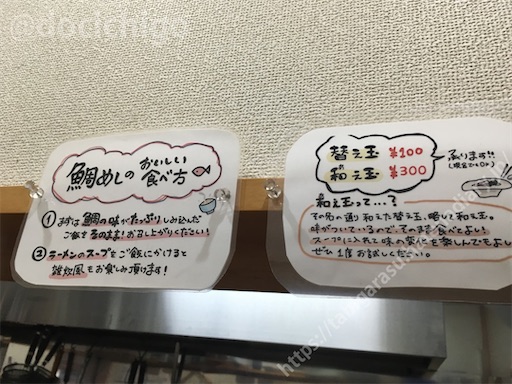 @docichigo
鯛めしの おいしい
食べ方
① まずは鯛の味がたっぷりしみ込んだ
ご飯をそのまま!お召し上がりください!
② ラーメンのスープをご飯にかけると
雑炊風もお楽しみ頂けます!
替え玉 ¥100
和え玉 ¥300
承ります!!
(現金でもOK)
和え玉って...?
その名の通り 和えた替え玉、略して和え玉。
味がついているので、そのまま食べてよし!
スープに入れて味の変化を楽しんでもよし
ぜひ1度お試しください。